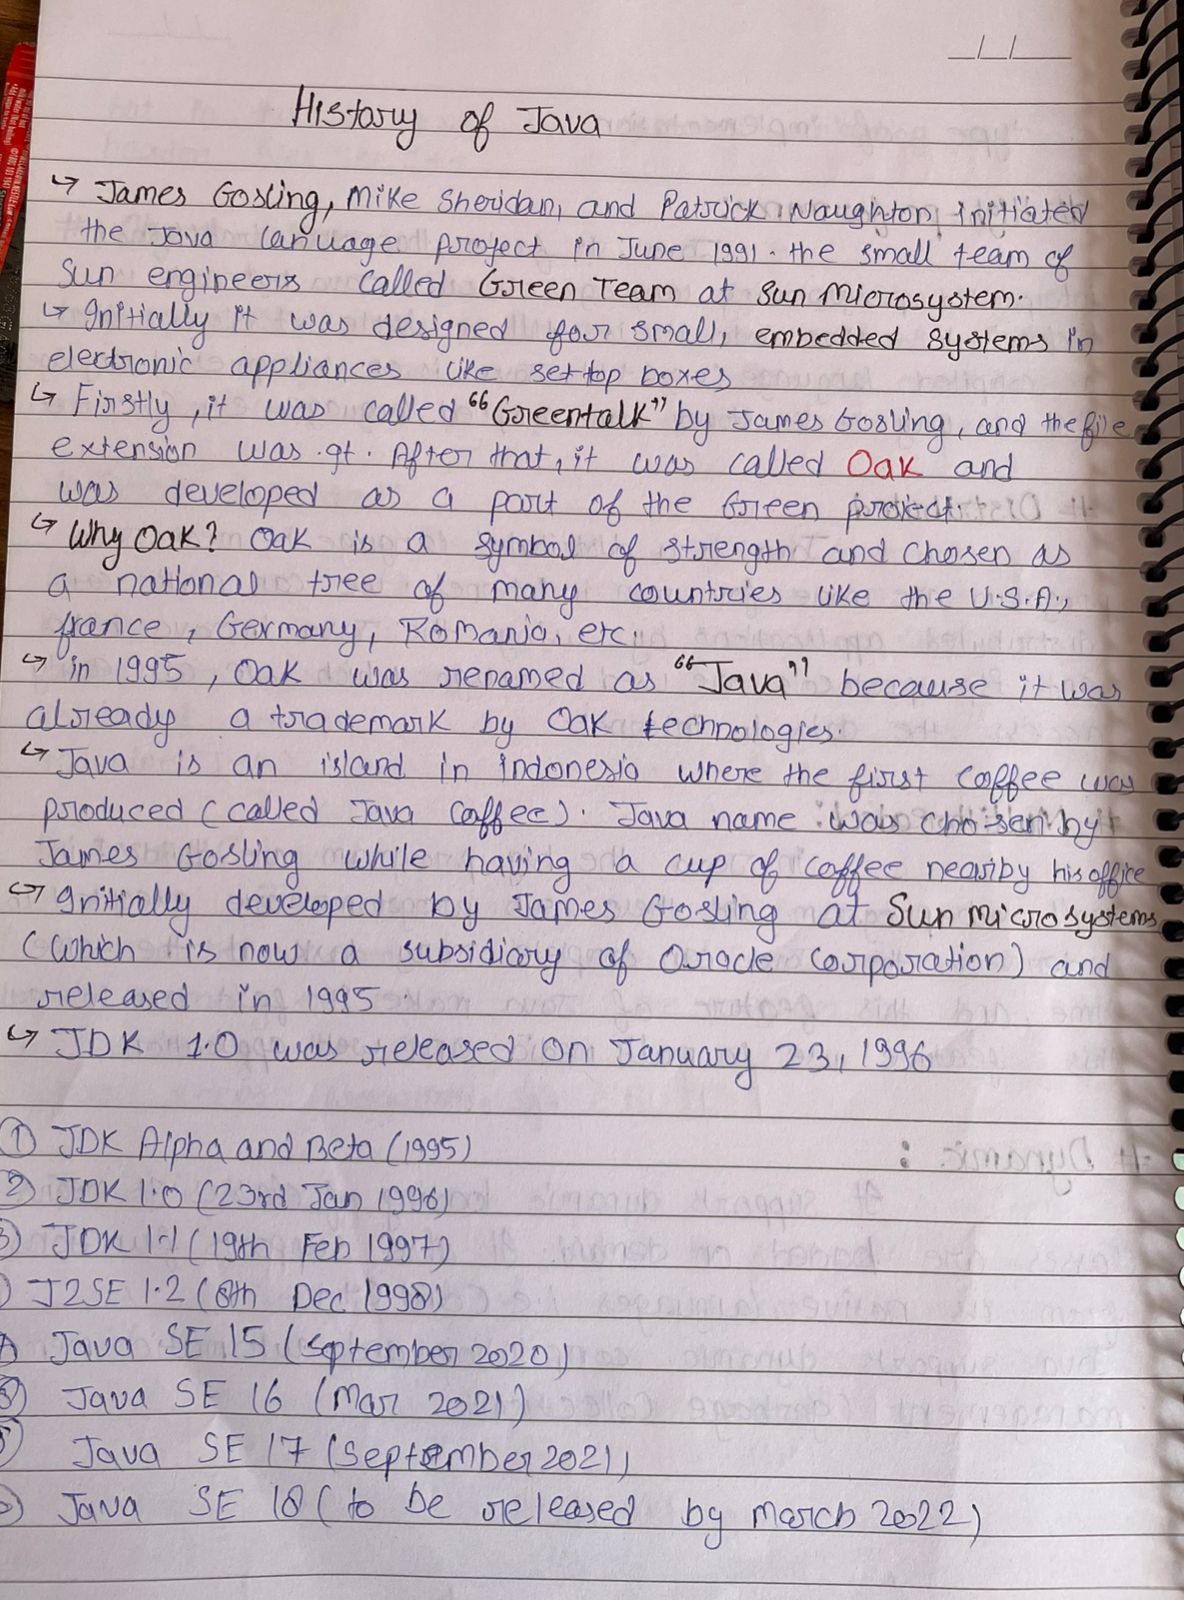 History of Java
↳ James Gosling, Mike Sheridan, and Patrick Naughton initiated
the Java lanuage project in June 1991. the small team of
Sun engineers called Green Team at Sun Microsystem.
↳ Initially it was designed for small, embedded systems in
electronic appliances like set top boxes
↳ Firstly, it was called "Greentalk" by James Gosling, and the file
extension was .gt. After that, it was called Oak and
was developed as a part of the Green project.
↳ Why Oak? Oak is a symbol of strength and chosen as
a national tree of many countries like the U.S.A.,
france, Germany, Romania, etc.
↳ in 1995, Oak was renamed as "Java" because it was
already a trademark by Oak technologies.
↳ Java is an island in indonesia where the first coffee was
produced (called Java coffee). Java name was chosen by
James Gosling while having a cup of coffee nearby his office
↳ Initially developed by James Gosling at Sun microsystems
(which is now a subsidiary of Oracle Corporation) and
released in 1995
↳ JDK 1.0 was released on January 23, 1996
① JDK Alpha and Beta (1995)
② JDK 1.0 (23rd Jan 1996)
③ JDK 1.1 (19th Feb 1997)
J2SE 1.2 (8th Dec 1998)
Java SE 15 (September 2020)
Java SE 16 (Mar 2021)
Java SE 17 (September 2021)
Java SE 18 (to be released by march 2022)